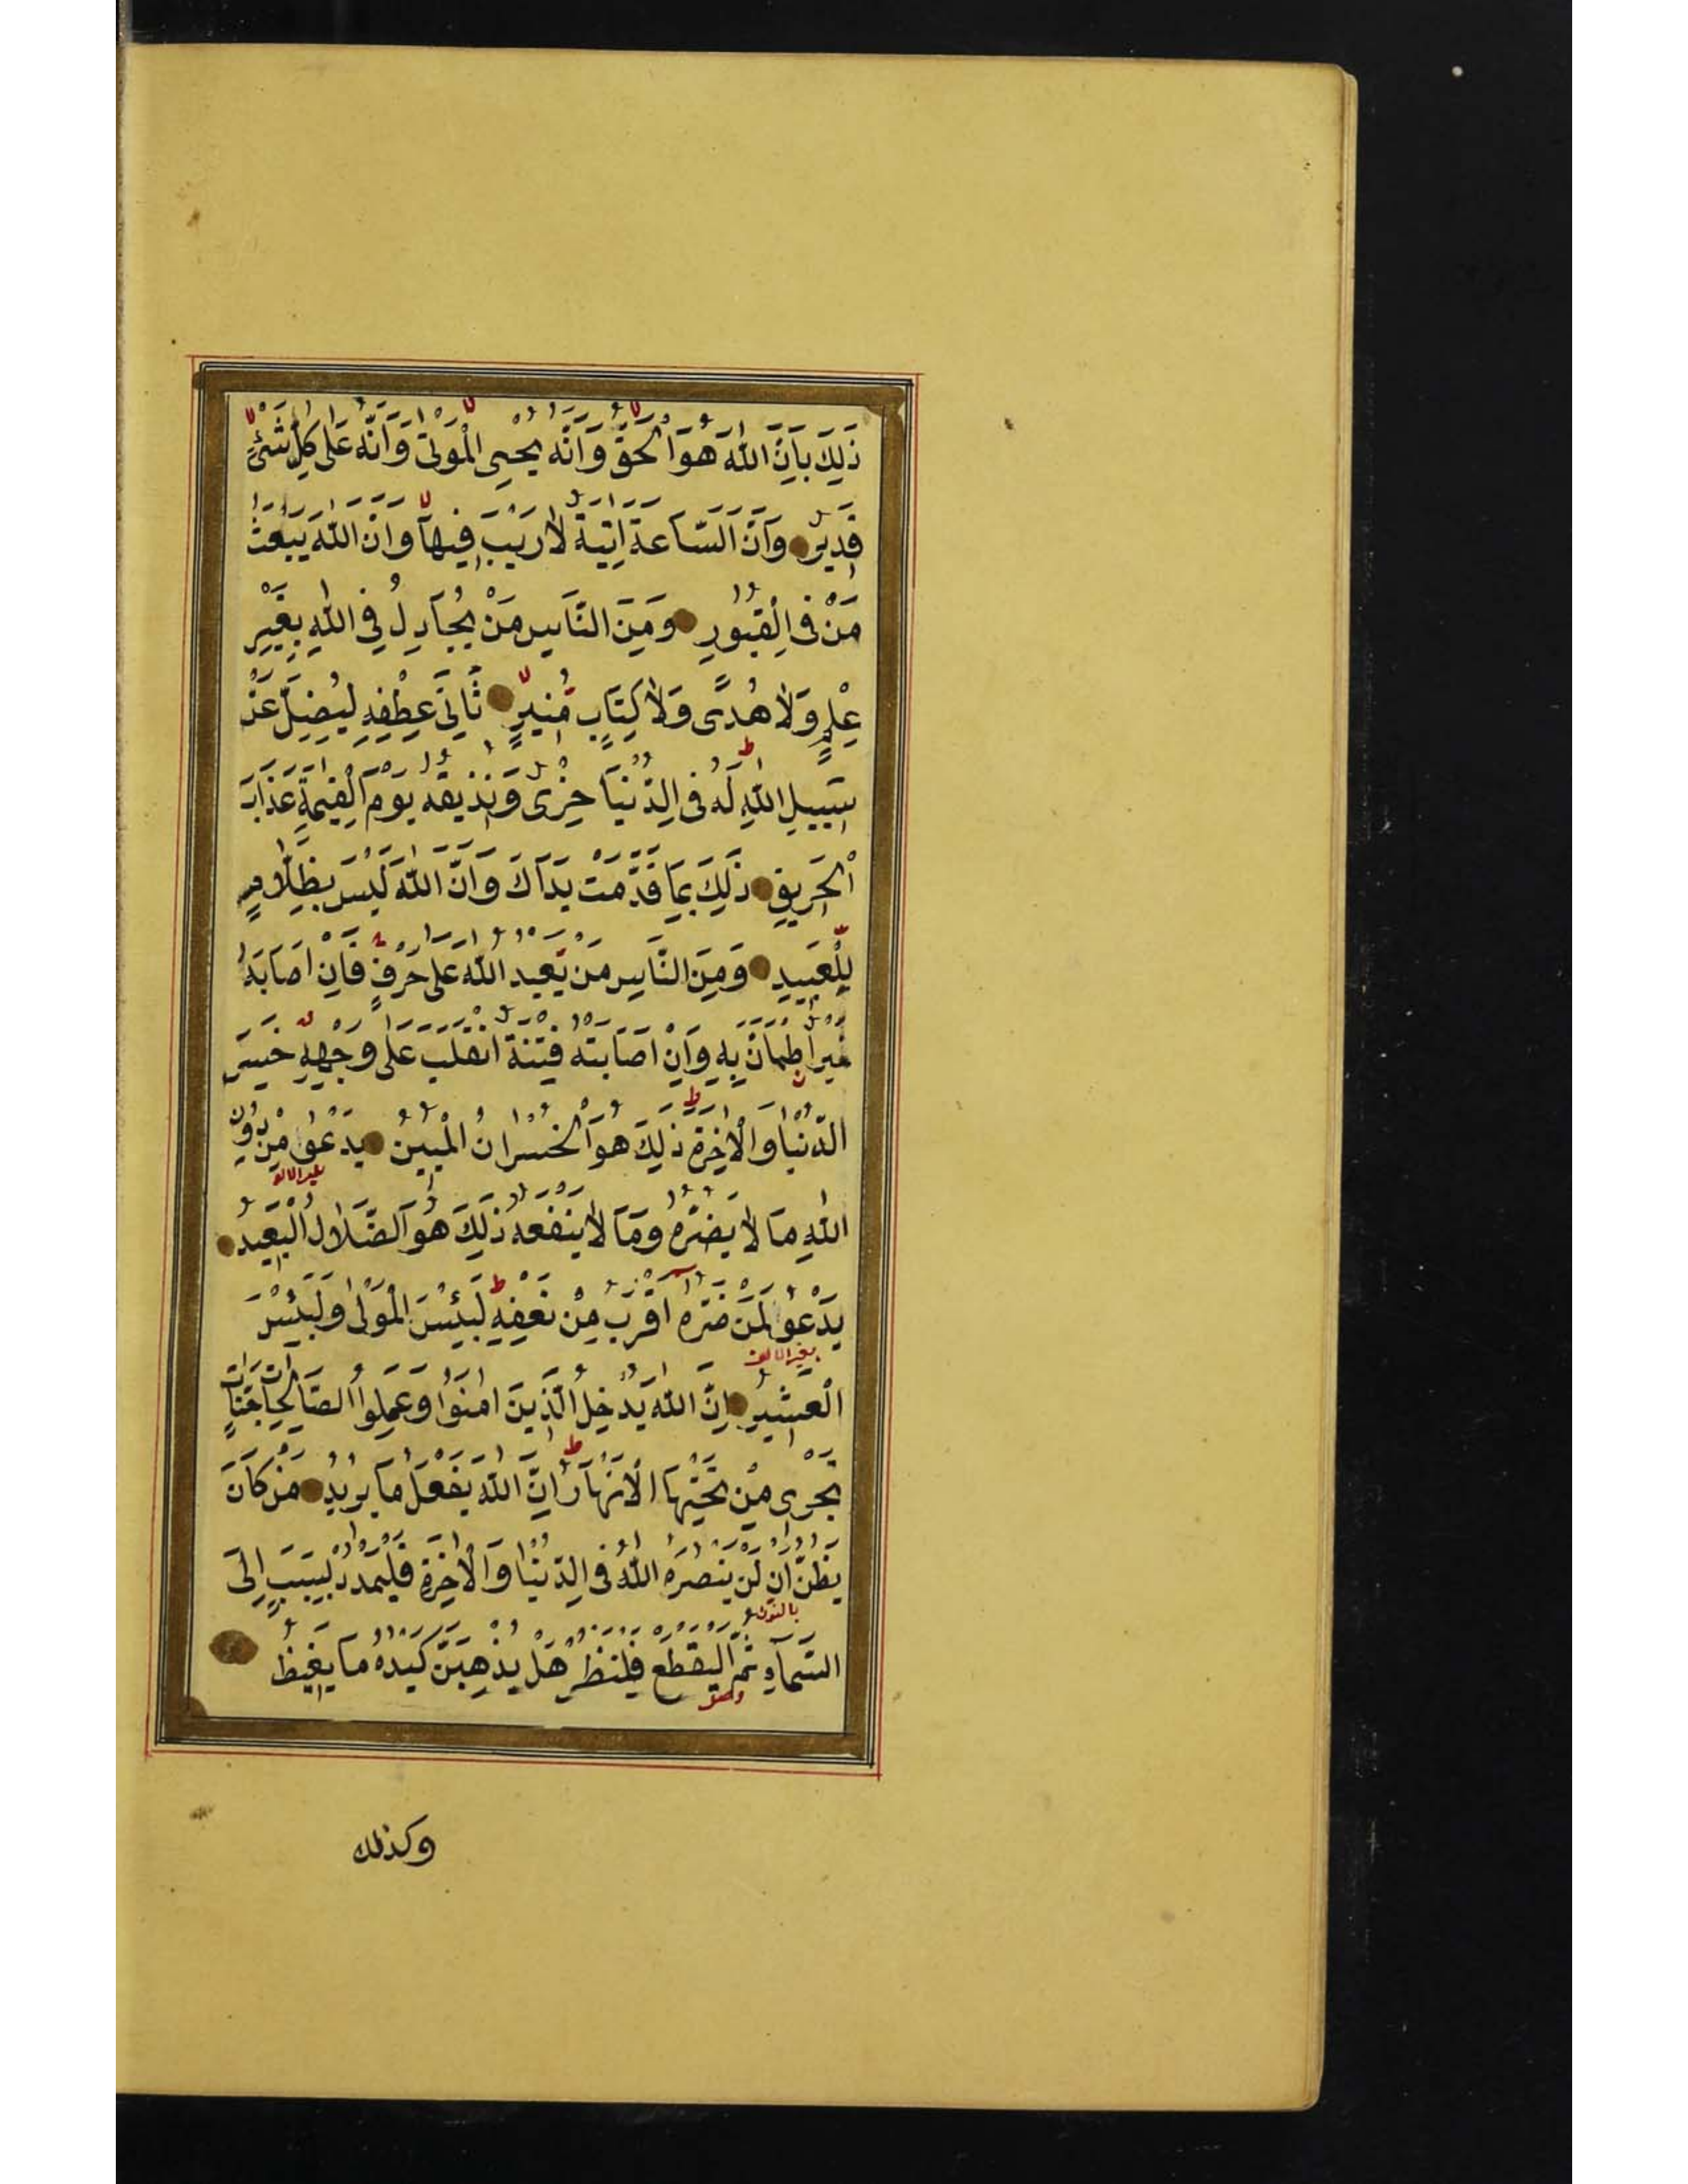 ذَلِكَ بِاَنَّ اللّٰهَ هُوَ الْحَقُّ وَاَنَّهُ يُحْيِى الْمَوْتٰى وَاَنَّهُ عَلٰى كُلِّ شَىْءٍ
قَدِيرٌ وَاَنَّ السَّاعَةَ اٰتِيَةٌ لَا رَيْبَ فِيهَا وَاَنَّ اللّٰهَ يَبْعَثُ
مَنْ فِى الْقُبُورِ وَمِنَ النَّاسِ مَنْ يُجَادِلُ فِى اللّٰهِ بِغَيْرِ
عِلْمٍ وَلَا هُدًى وَلَا كِتَابٍ مُنِيرٍ ثَانِىَ عِطْفِهِ لِيُضِلَّ عَنْ
سَبِيلِ اللّٰهِ لَهُ فِى الدُّنْيَا خِزْىٌ وَنُذِيقُهُ يَوْمَ الْقِيٰمَةِ عَذَابَ
الْحَرِيقِ ذَلِكَ بِمَا قَدَّمَتْ يَدَاكَ وَاَنَّ اللّٰهَ لَيْسَ بِظَلَّامٍ
لِلْعَبِيدِ وَمِنَ النَّاسِ مَنْ يَعْبُدُ اللّٰهَ عَلٰى حَرْفٍ فَاِنْ اَصَابَهُ
خَيْرٌ اطْمَاَنَّ بِهِ وَاِنْ اَصَابَتْهُ فِتْنَةٌ انْقَلَبَ عَلٰى وَجْهِهِ خَسِرَ
الدُّنْيَا وَالْاٰخِرَةَ ذٰلِكَ هُوَ الْخُسْرَانُ الْمُبِينُ يَدْعُوا مِنْ دُونِ
بغير الالف
اللّٰهِ مَا لَا يَضُرُّهُ وَمَا لَا يَنْفَعُهُ ذٰلِكَ هُوَ الضَّلَالُ الْبَعِيدُ
يَدْعُوا لَمَنْ ضَرُّهُ اَقْرَبُ مِنْ نَفْعِهِ لَبِئْسَ الْمَوْلٰى وَلَبِئْسَ
بغير الالف
الْعَشِيرُ اِنَّ اللّٰهَ يُدْخِلُ الَّذِينَ اٰمَنُوا وَعَمِلُوا الصَّالِحَاتِ جَنَّاتٍ
تَجْرِى مِنْ تَحْتِهَا الْاَنْهَارُ اِنَّ اللّٰهَ يَفْعَلُ مَا يُرِيدُ مَنْ كَانَ
يَظُنُّ اَنْ لَنْ يَنْصُرَهُ اللّٰهُ فِى الدُّنْيَا وَالْاٰخِرَةِ فَلْيَمْدُدْ بِسَبَبٍ اِلَى
بالنون
السَّمَاءِ ثُمَّ الْيَقْطَعْ فَلْيَنْظُرْ هَلْ يُذْهِبَنَّ كَيْدُهُ مَا يَغِيظُ
وكذلك